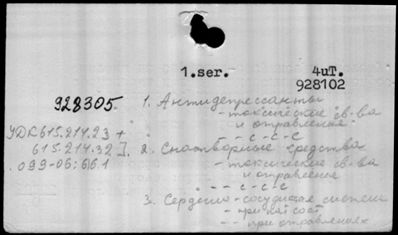 1.ser. 4uT.
928102
928305. 1. Антидепрессанты
- токсические св-ва
и отравления.
УДК 615.214.23 +
" - с-с-с
615.214.32]. 2. Снотворные средства
.099-06:661 - токсические св-ва
и отравления
" - - с-с-с
3. Сердечно-сосудистая система
- при пат. сост.
- - при отравлениях